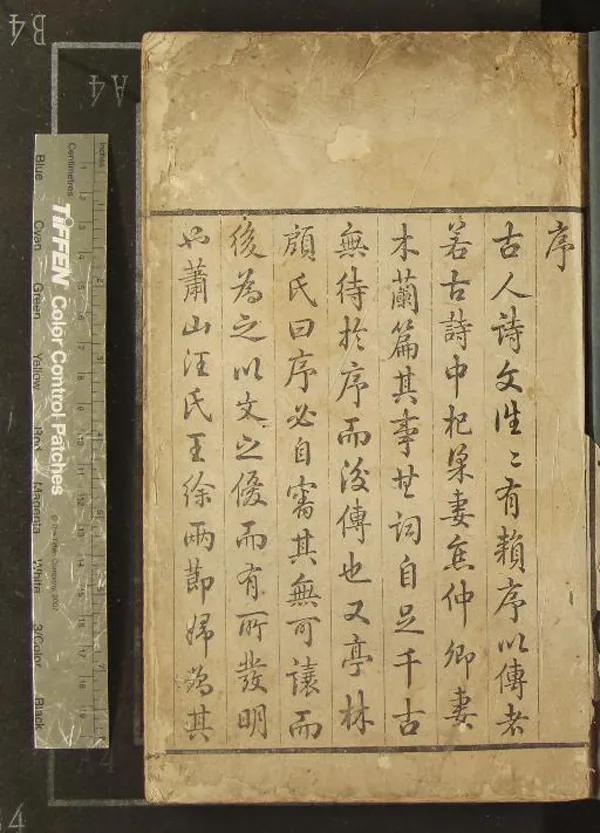 序
古人詩文往〻有賴序以傳者
若古詩中杞梁妻焦仲卿妻
木蘭篇其事其詞自足千古
無待於序而後傳也又亭林
顧氏曰序必自審其無可讓而
後為之以文之優而有所發明
也蕭山汪氏王徐兩節婦為其
B4
A4
Inches
Centimetres
TIFFEN Color Control Patches
© The Tiffen Company, 2007
Blue
Cyan
Green
Yellow
Red
Magenta
White
3/Color
Black